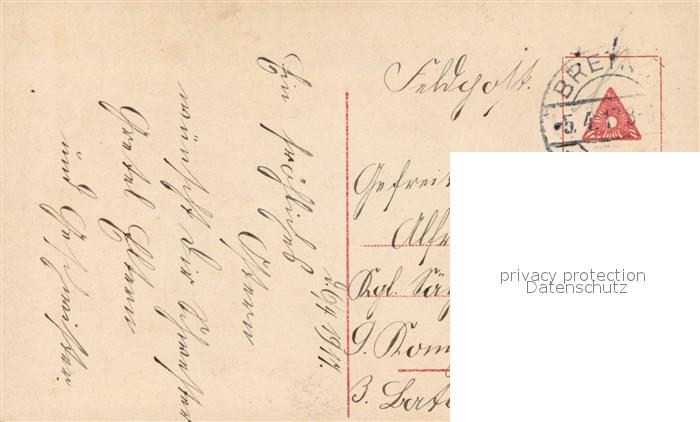 Ein fröhliches
Ostern
wünscht Dir Schwester
Gretel Eltern
und Geschwister.
d. 6/4 1917.
Feldpost.
BRE
5.4.17. 8
Gefreit
Alfr
Kgl. Säch
9. Kom
3. Bata
privacy protection
Datenschutz